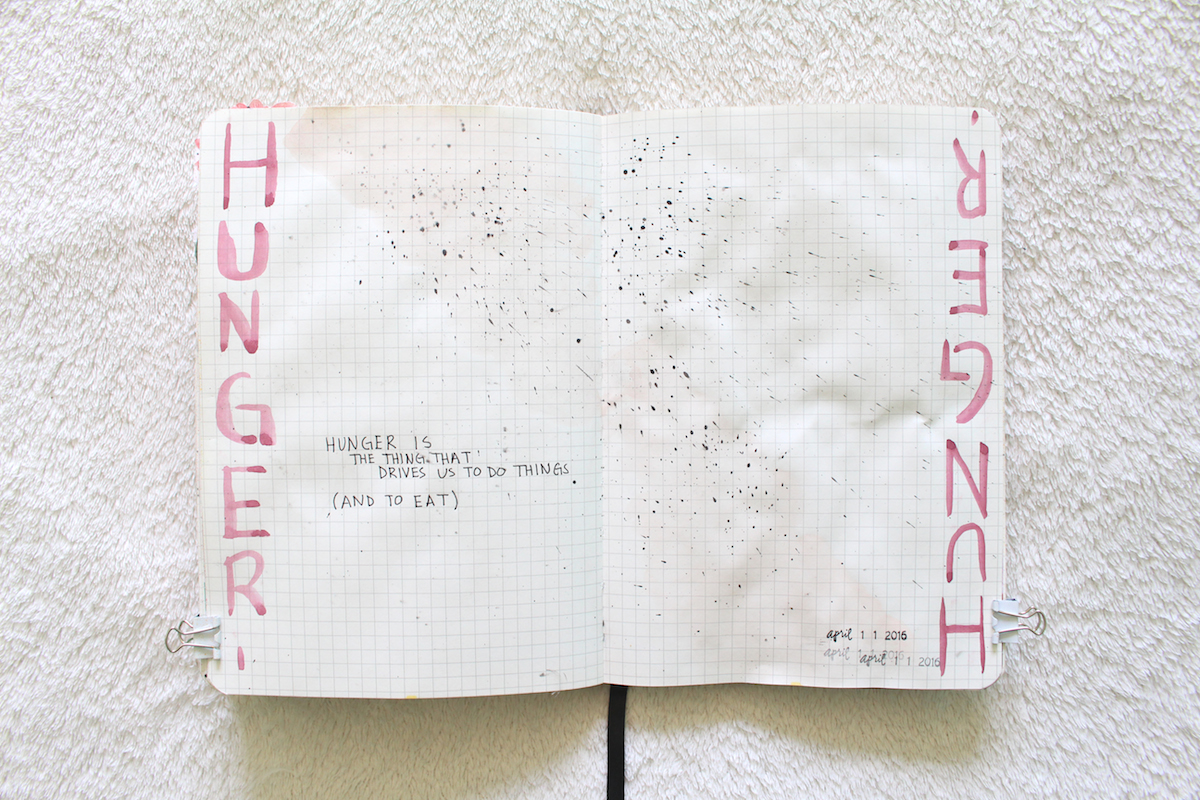 HUNGER
HUNGER IS
THE THING THAT
DRIVES US TO DO THINGS
(AND TO EAT)
HUNGER
april 1 1 2016
april 1 1 2016
april 1 1 2016